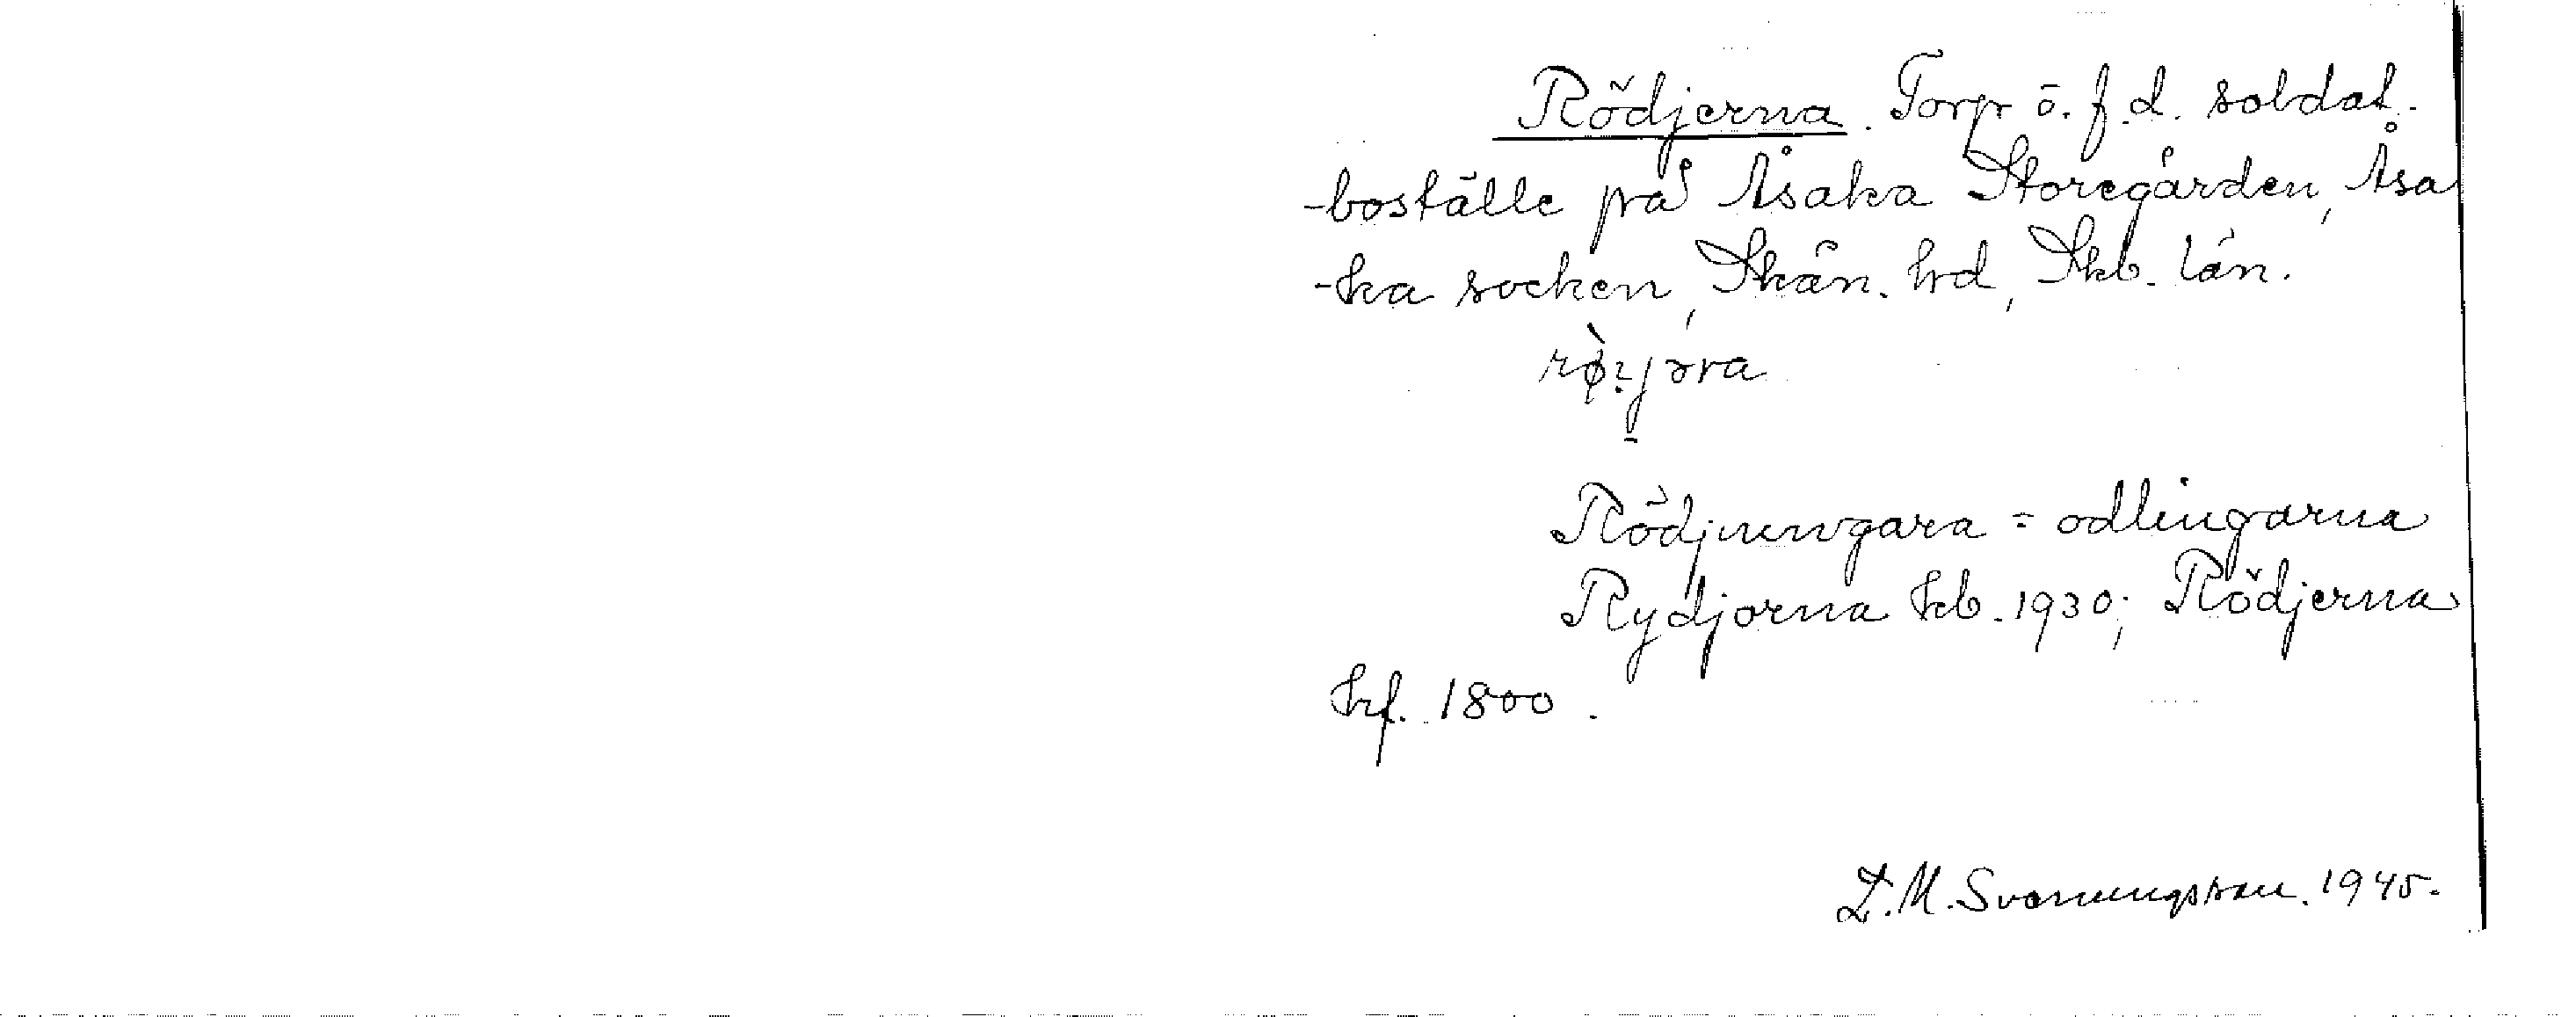 Rödjerna. Torp o. f.d. soldat-
-boställe på Åsaka Storegården, Åsa
-ka socken, Skån. hrd, Skb. län.
Rödjningara = odlingarna
Rydjorna kb. 1930; Rödjerna
hf. 1800.
D. M. Svenningsson. 1945.